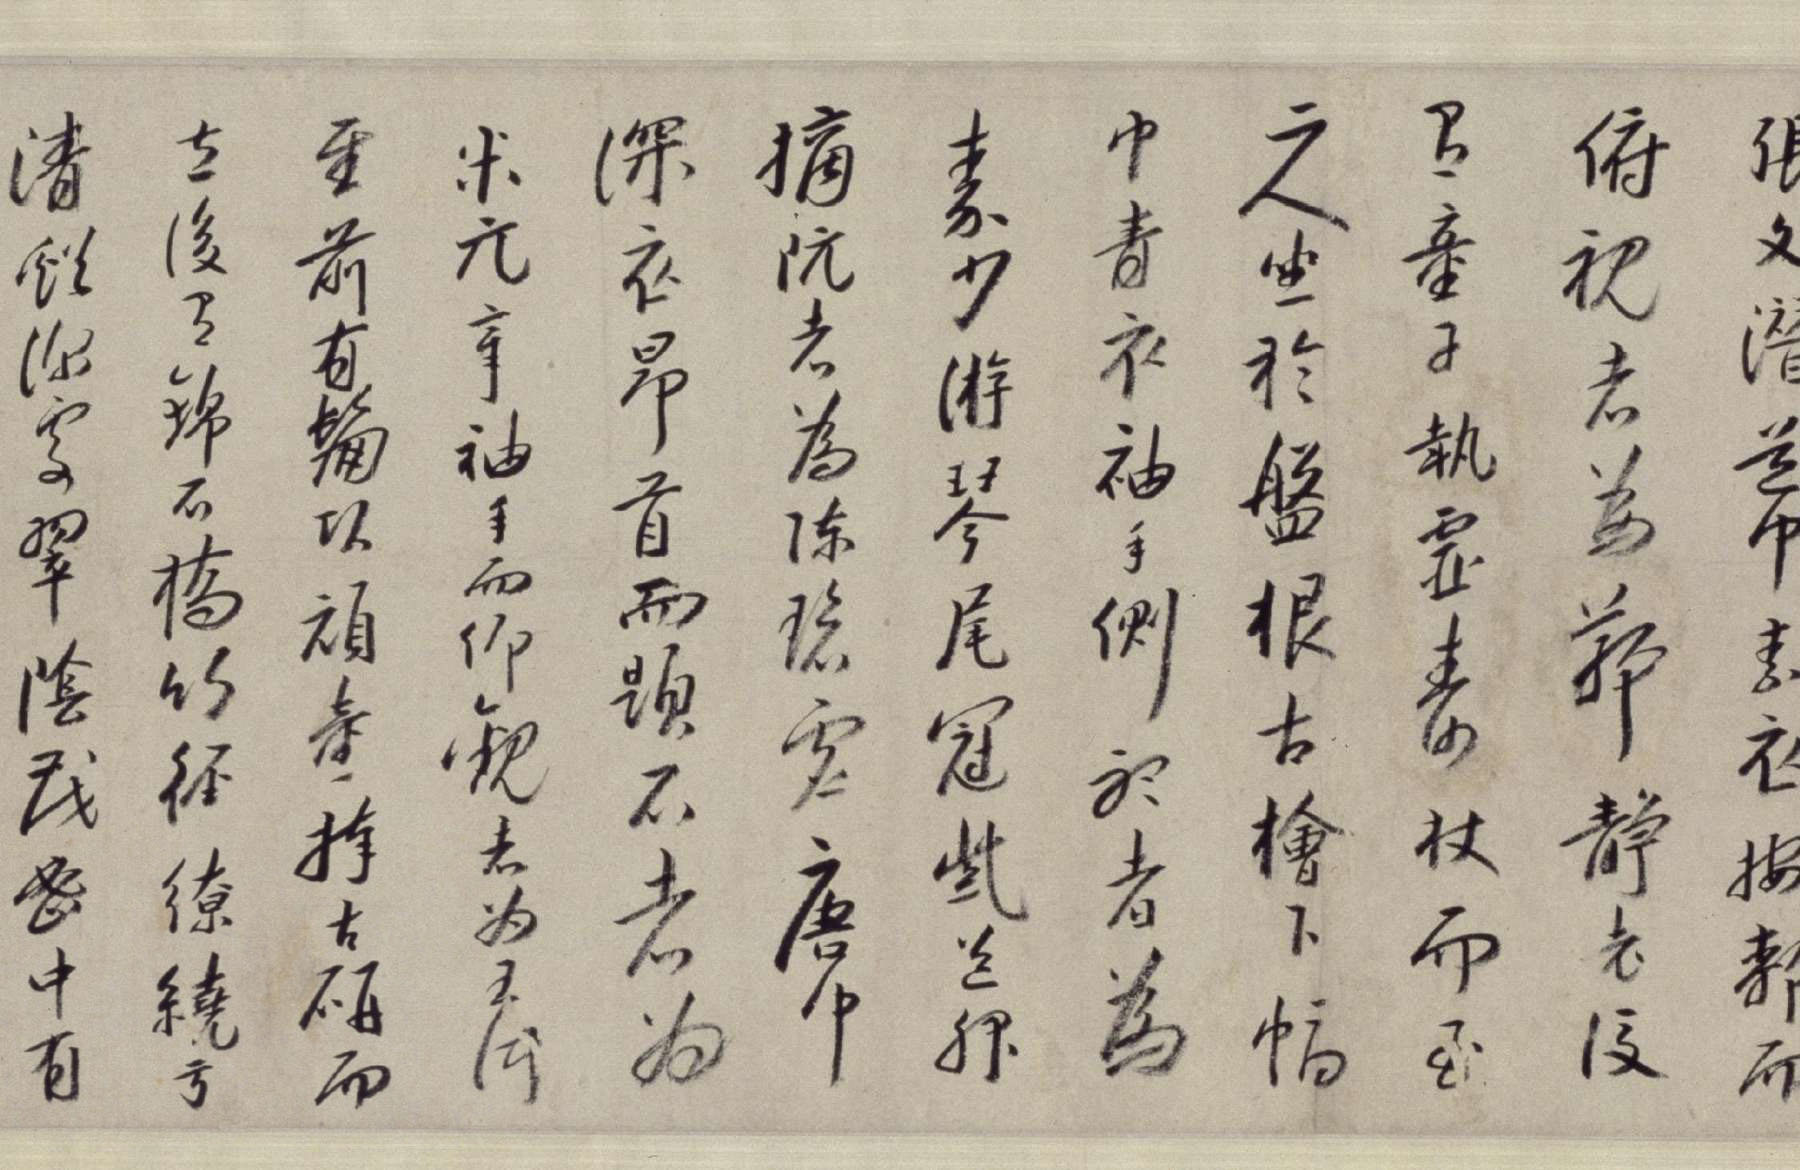 張文潛道巾素衣按膝而
俯視者為鄭靜老後
有童子執靈壽杖而立
二人坐於盤根古檜下幅
巾青衣袖手側聽者為
秦少游琴尾冠紫道服
摘阮者為陳碧虛唐巾
深衣昂首而題石者為
米元章袖手而仰觀者為王仲
至前有鬅頭頑童捧古硯而
立後有錦石橋竹徑繚繞于
清谿深處翠陰茂密中有